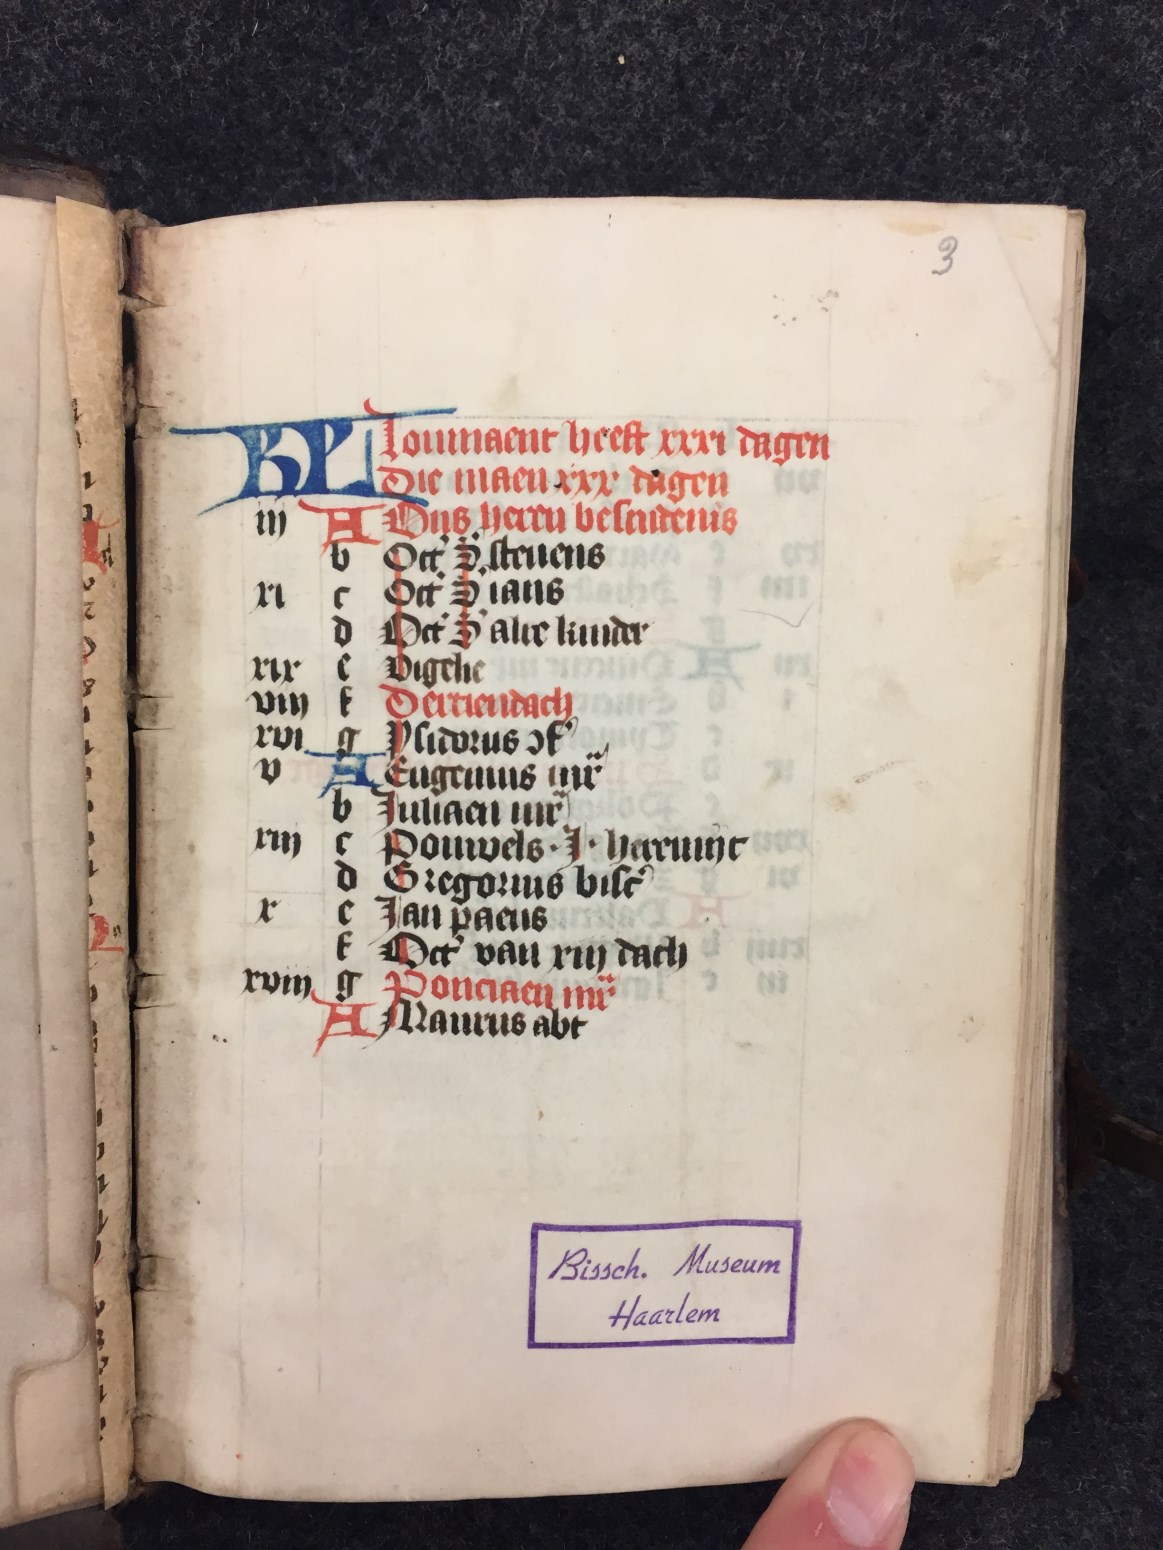 3
KL Loumaent heeft xxxi dagen
Die maen xxx dagen
iii A Ons heren besnidenis
b Oct' S. steuens
xi c Oct' S ians
d Oct' S alre kinder
xix e Vigelie
viii f Dertiendach
xvi g Ysidorus
v A Eugenius mr
b Juliaen mr
xiii c Pouwels · J · heremijt
d Gregorius bisc'
x e Jan paeus
f Oct' van xiij dach
xviii g Ponciaen mr
A Maurus abt
Bissch. Museum
Haarlem